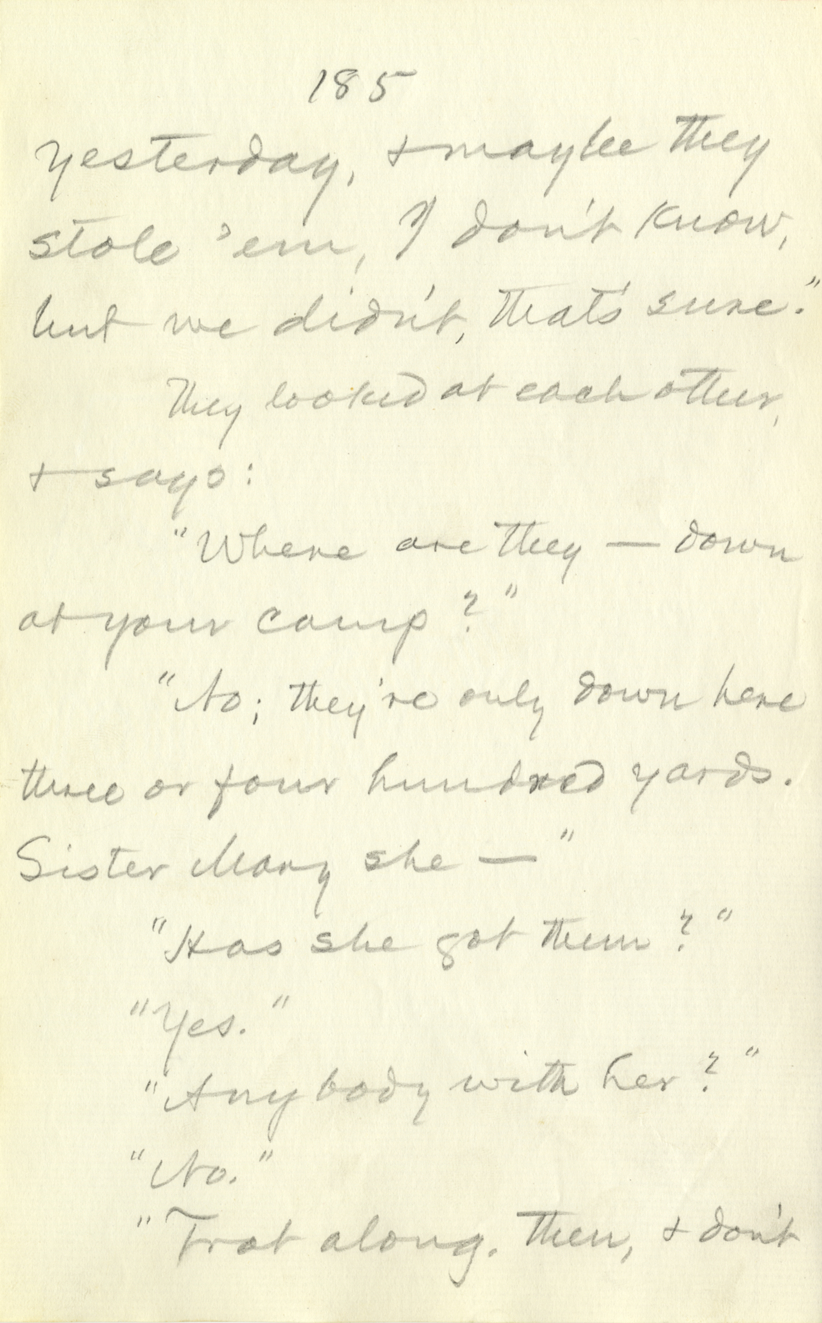 185
yesterday, & maybe they
stole 'em, I don't know,
but we didn't, that's sure."
They looked at each other,
& says:
"Where are they — down
at your camp?"
"No; they're only down here
three or four hundred yards.
Sister Mary she —"
"Has she got them?"
"Yes."
"Anybody with her?"
"No."
"Trot along, then, & don't